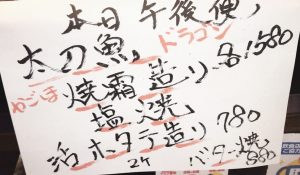 本日午後便
太刀魚 ドラゴン
かごほ 焼霜造り 各1580
塩焼
活ホタテ造り 780
2ケ バター焼 880